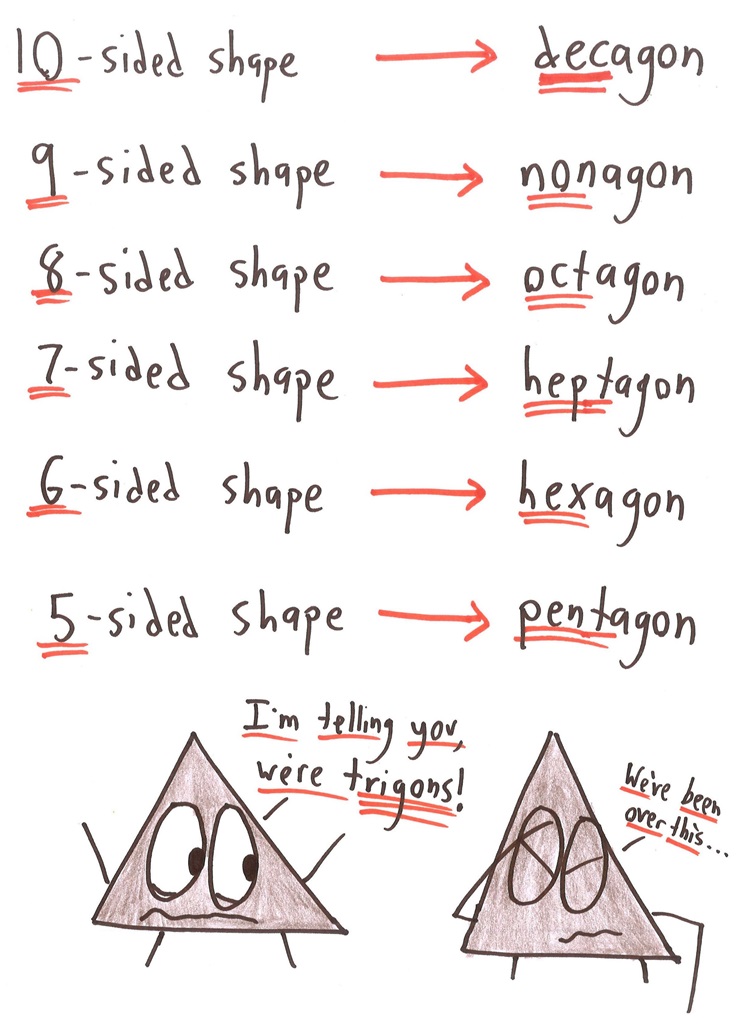 10-sided shape → decagon
9-sided shape → nonagon
8-sided shape → octagon
7-sided shape → heptagon
6-sided shape → hexagon
5-sided shape → pentagon
I'm telling you,
we're trigons!
We've been
over this...